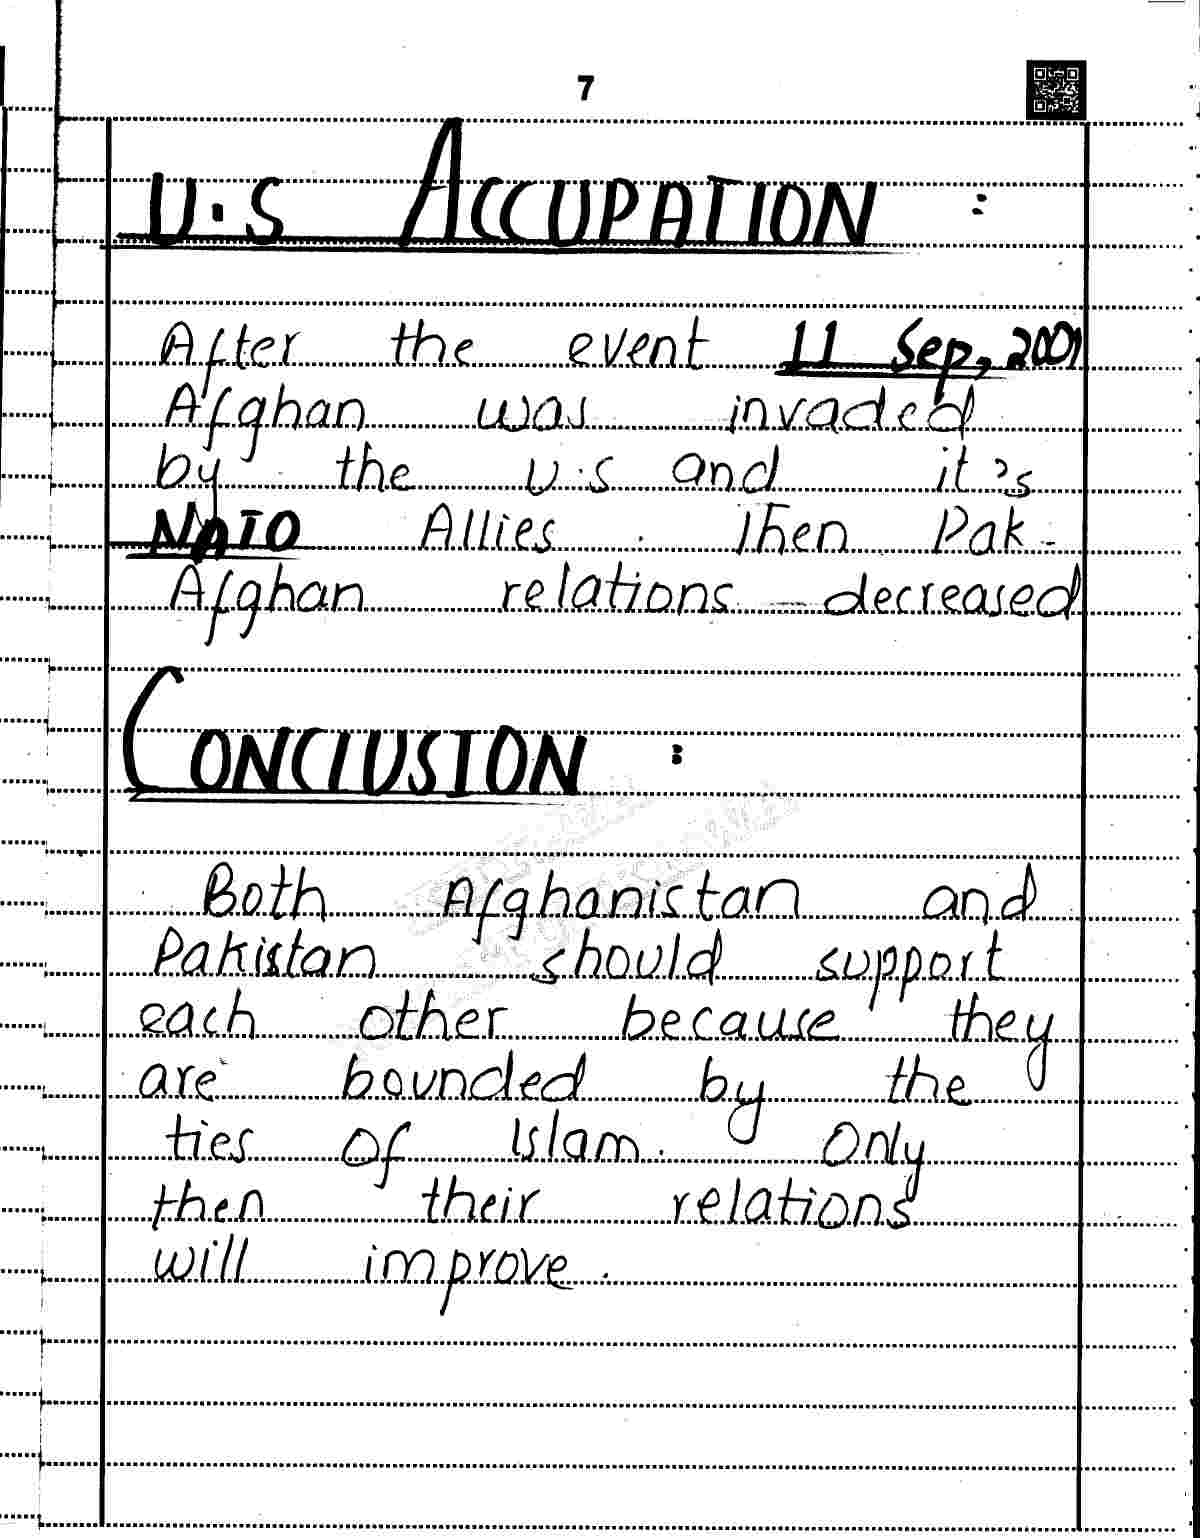 7
U.S ACCUPATION :
After the event 11 Sep, 2001
Afghan was invaded
by the U.S and it's
NATO Allies. Then Pak-
Afghan relations decreased
CONCLUSION :
Both Afghanistan and
Pakistan should support
each other because they
are bounded by the
ties of Islam. Only
then their relations
will improve.